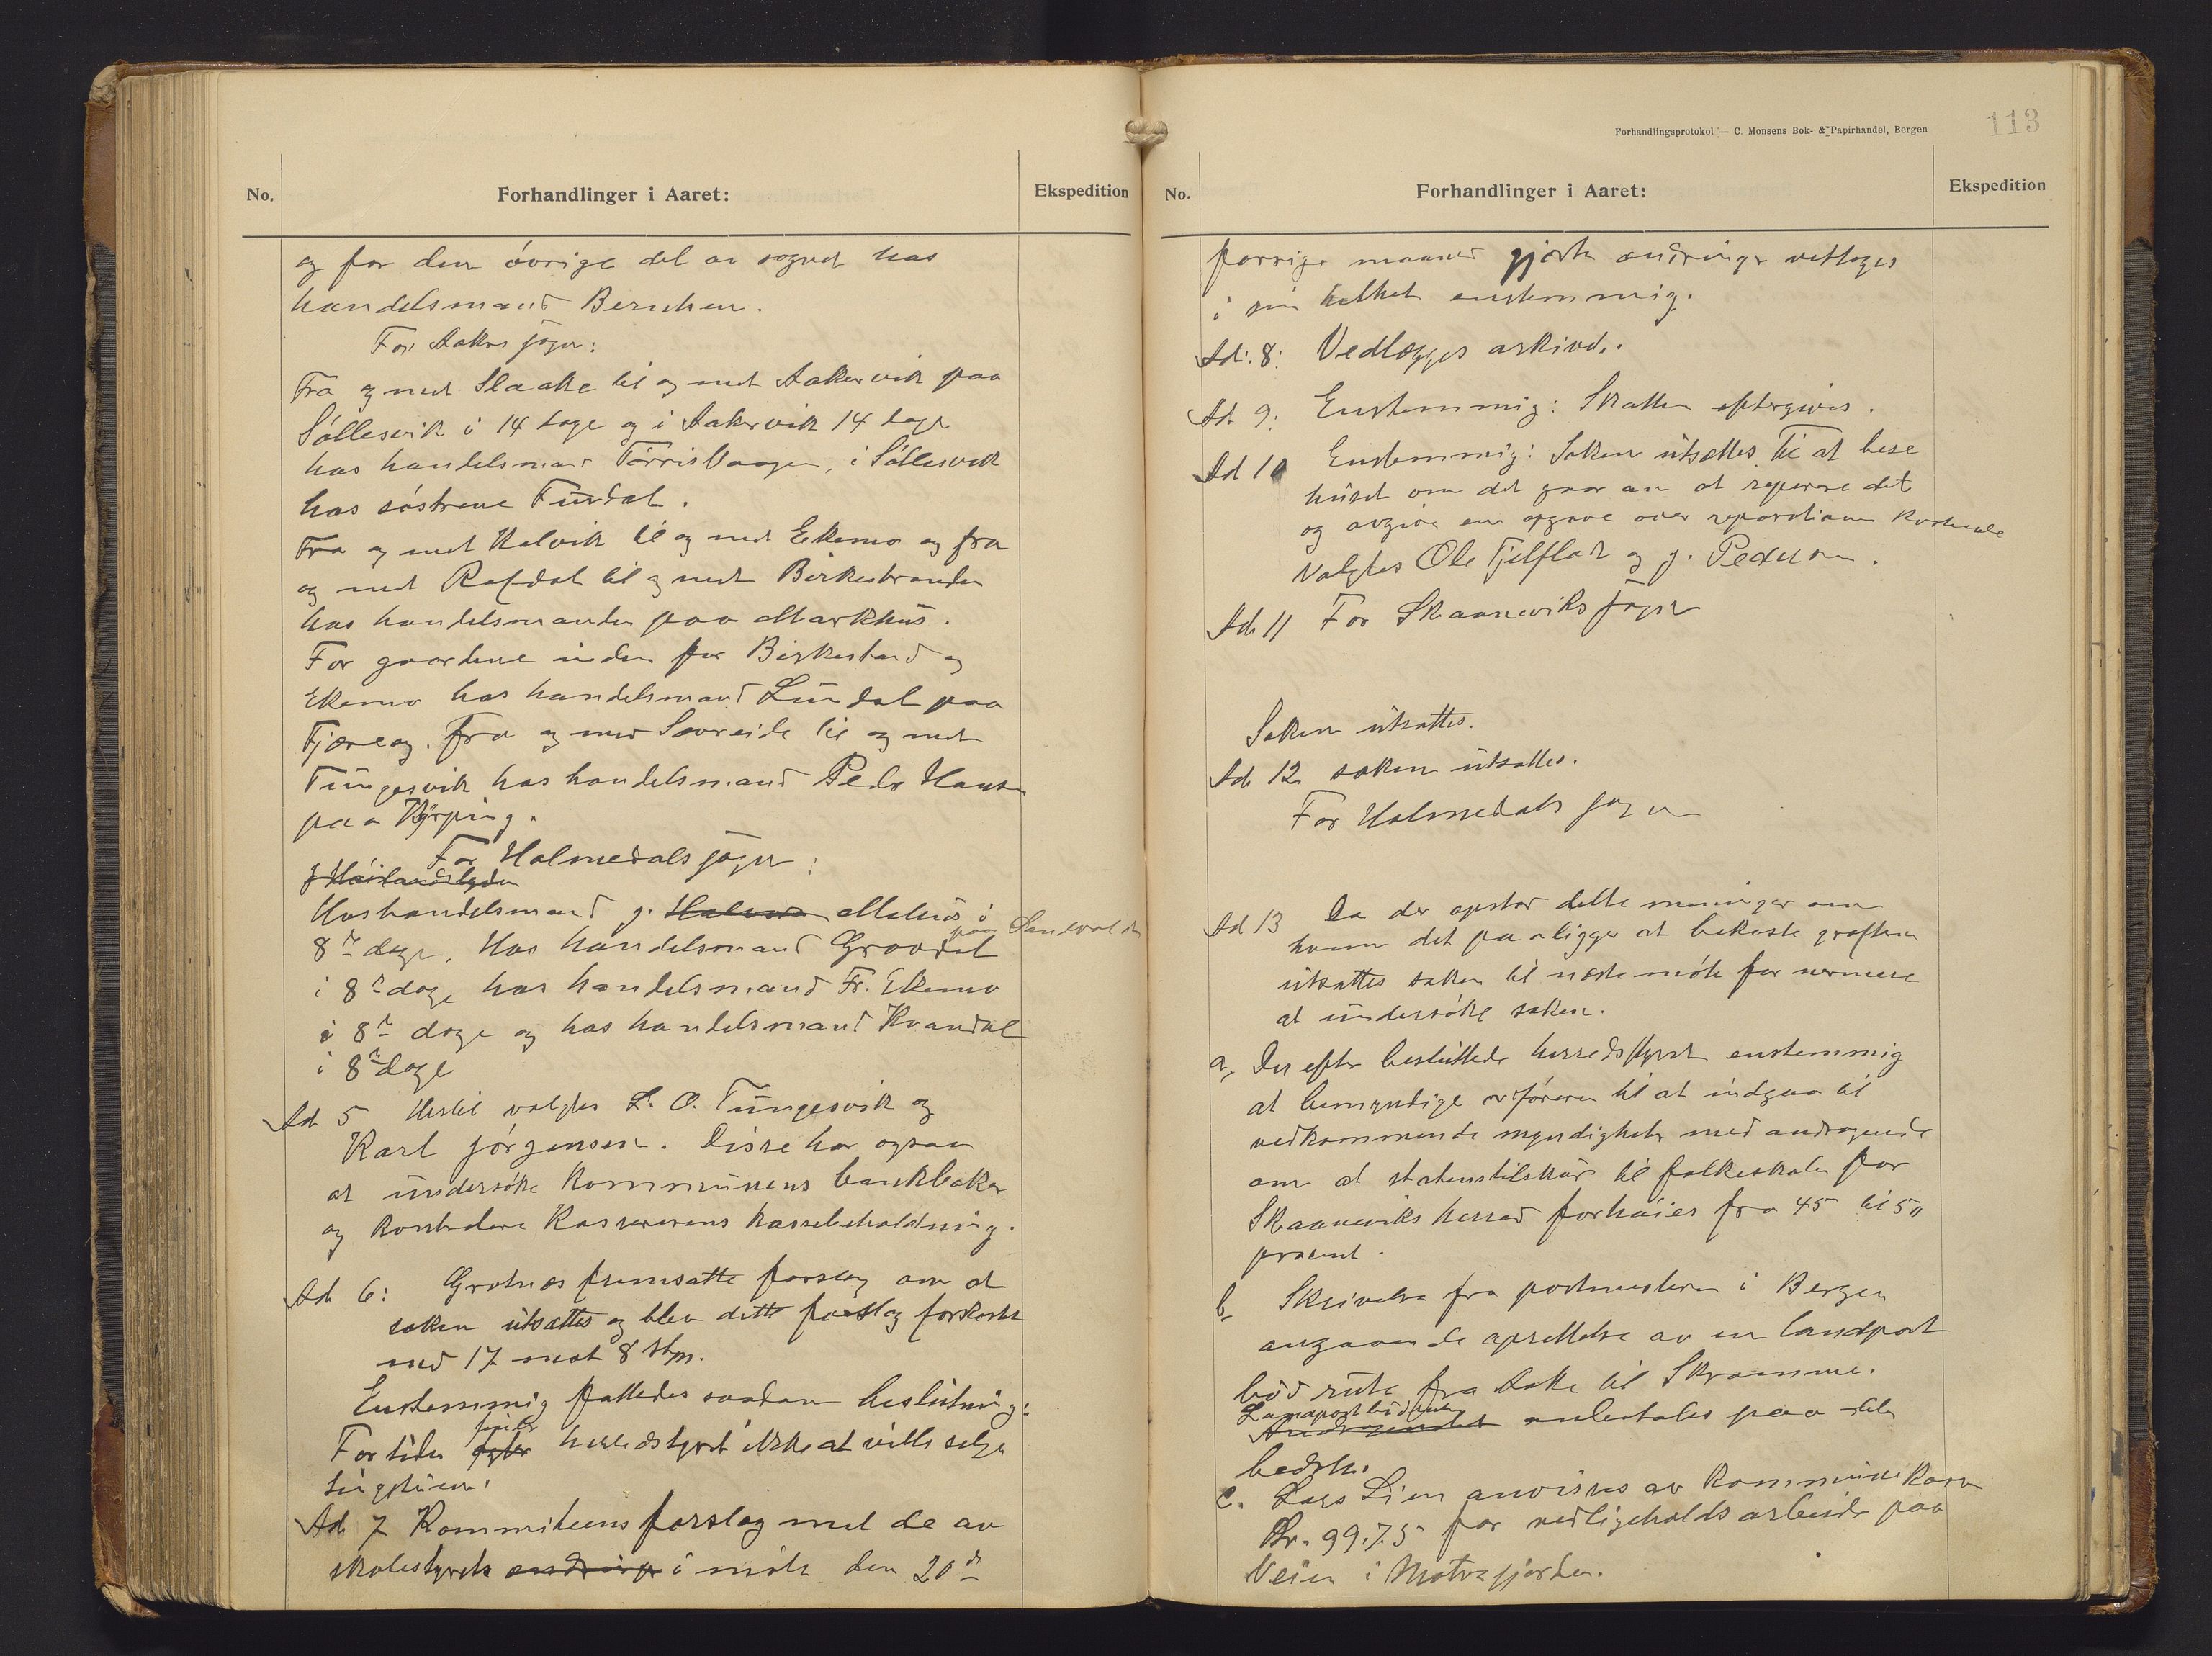 No.
Forhandlinger i Aaret:
Ekspedition
og for den övrige del av sognet hos
handelsmand Berntsen.
For Aakre sogn:
Fra og med Slaake til og med Aakervik paa
Söllesvik i 14 dage og i Aakervik 14 dage
hos handelsmand Torris Vaagen, i Söllesvik
hos söstrene Furdal.
Fra og med Kalvik til og med Ekemo og fra
og med Rafdal til og med Birkestranden
hos handelsmanden paa Markhus.
For gaardene inden for Birkestrand og
Ekemo hos handelsmand Lundal paa
Fjæra og. Fra og med Sævreide til og med
Tungesvik hos handelsmand Peder Hansen
paa Kyrping.
For Holmedals sogn:
Hos handelsmand J. Mehus i
8de dage, Hos handelsmand Gravdal paa Sandvoldn
i 8de dage hos handelsmand Fr. Ekemo
i 8de dage og hos handelsmand Kvandal
i 8de dage
Ad 5 Hertil valgtes L. O. Tungesvik og
Karl Jörgensen. Disse har ogsaa
at undersöke kommunens bankböker
og kontrolere kassererens kassebeholdning.
Ad 6: Grotnes fremsatte forslag om at
saken utsættes og blev dette forslag forkastet
med 17 mot 8 stm.
Enstemmig fattedes saadan beslutning:
For tiden finder herredstyret ikke at ville selge
tingstuen.
Ad 7 Kommiteens forslag med de av
skolestyrets endringer i möte den 20de
Forhandlingsprotokol — C. Monsens Bok- & Papirhandel, Bergen
113
No.
Forhandlinger i Aaret:
Ekspedition
forrige maaned gjorte ændringer vettoges
i sin helhet enstemmig.
Ad. 8: Vedlægges arkivet.
Ad. 9: Enstemmig: Skatten eftergives.
Ad 10 Enstemmig: Saken utsættes. Til at bese
huset om det gaar an at reparere det
og avgive en opgave over reparationens kostende
valgtes Ole Fjelflat og J. Pederson.
Ad 11 For Skaaneviks sogn
Saken utsattes.
Ad 12 saken utsattes.
For Holmedals sogn
Ad 13 Da der opstod delte meninger om
hvem det paaligger at bekoste grøften
utsattes saken til næste möte for nermere
at undersöke saken.
a, Der efter besluttede herredstyret enstemmig
at bemyndige ordföreren til at indgaa til
vedkommende myndigheter med andragende
om at statens tilskud til folkeskolen for
Skaaneviks herred forhöies fra 45 til 50
procent.
b, Skrivelse fra postmesteren i Bergen
angaaende oprettelse av en landpost
bud rute fra Aakre til Skromme.
Landpostbudruten
Andragendet anbefales paa det
bedste.
c. Lars Lien anvises av kommunekassen
Kr. 99.75 for vedligeholdsarbeide paa
Veien i Matrefjorden.